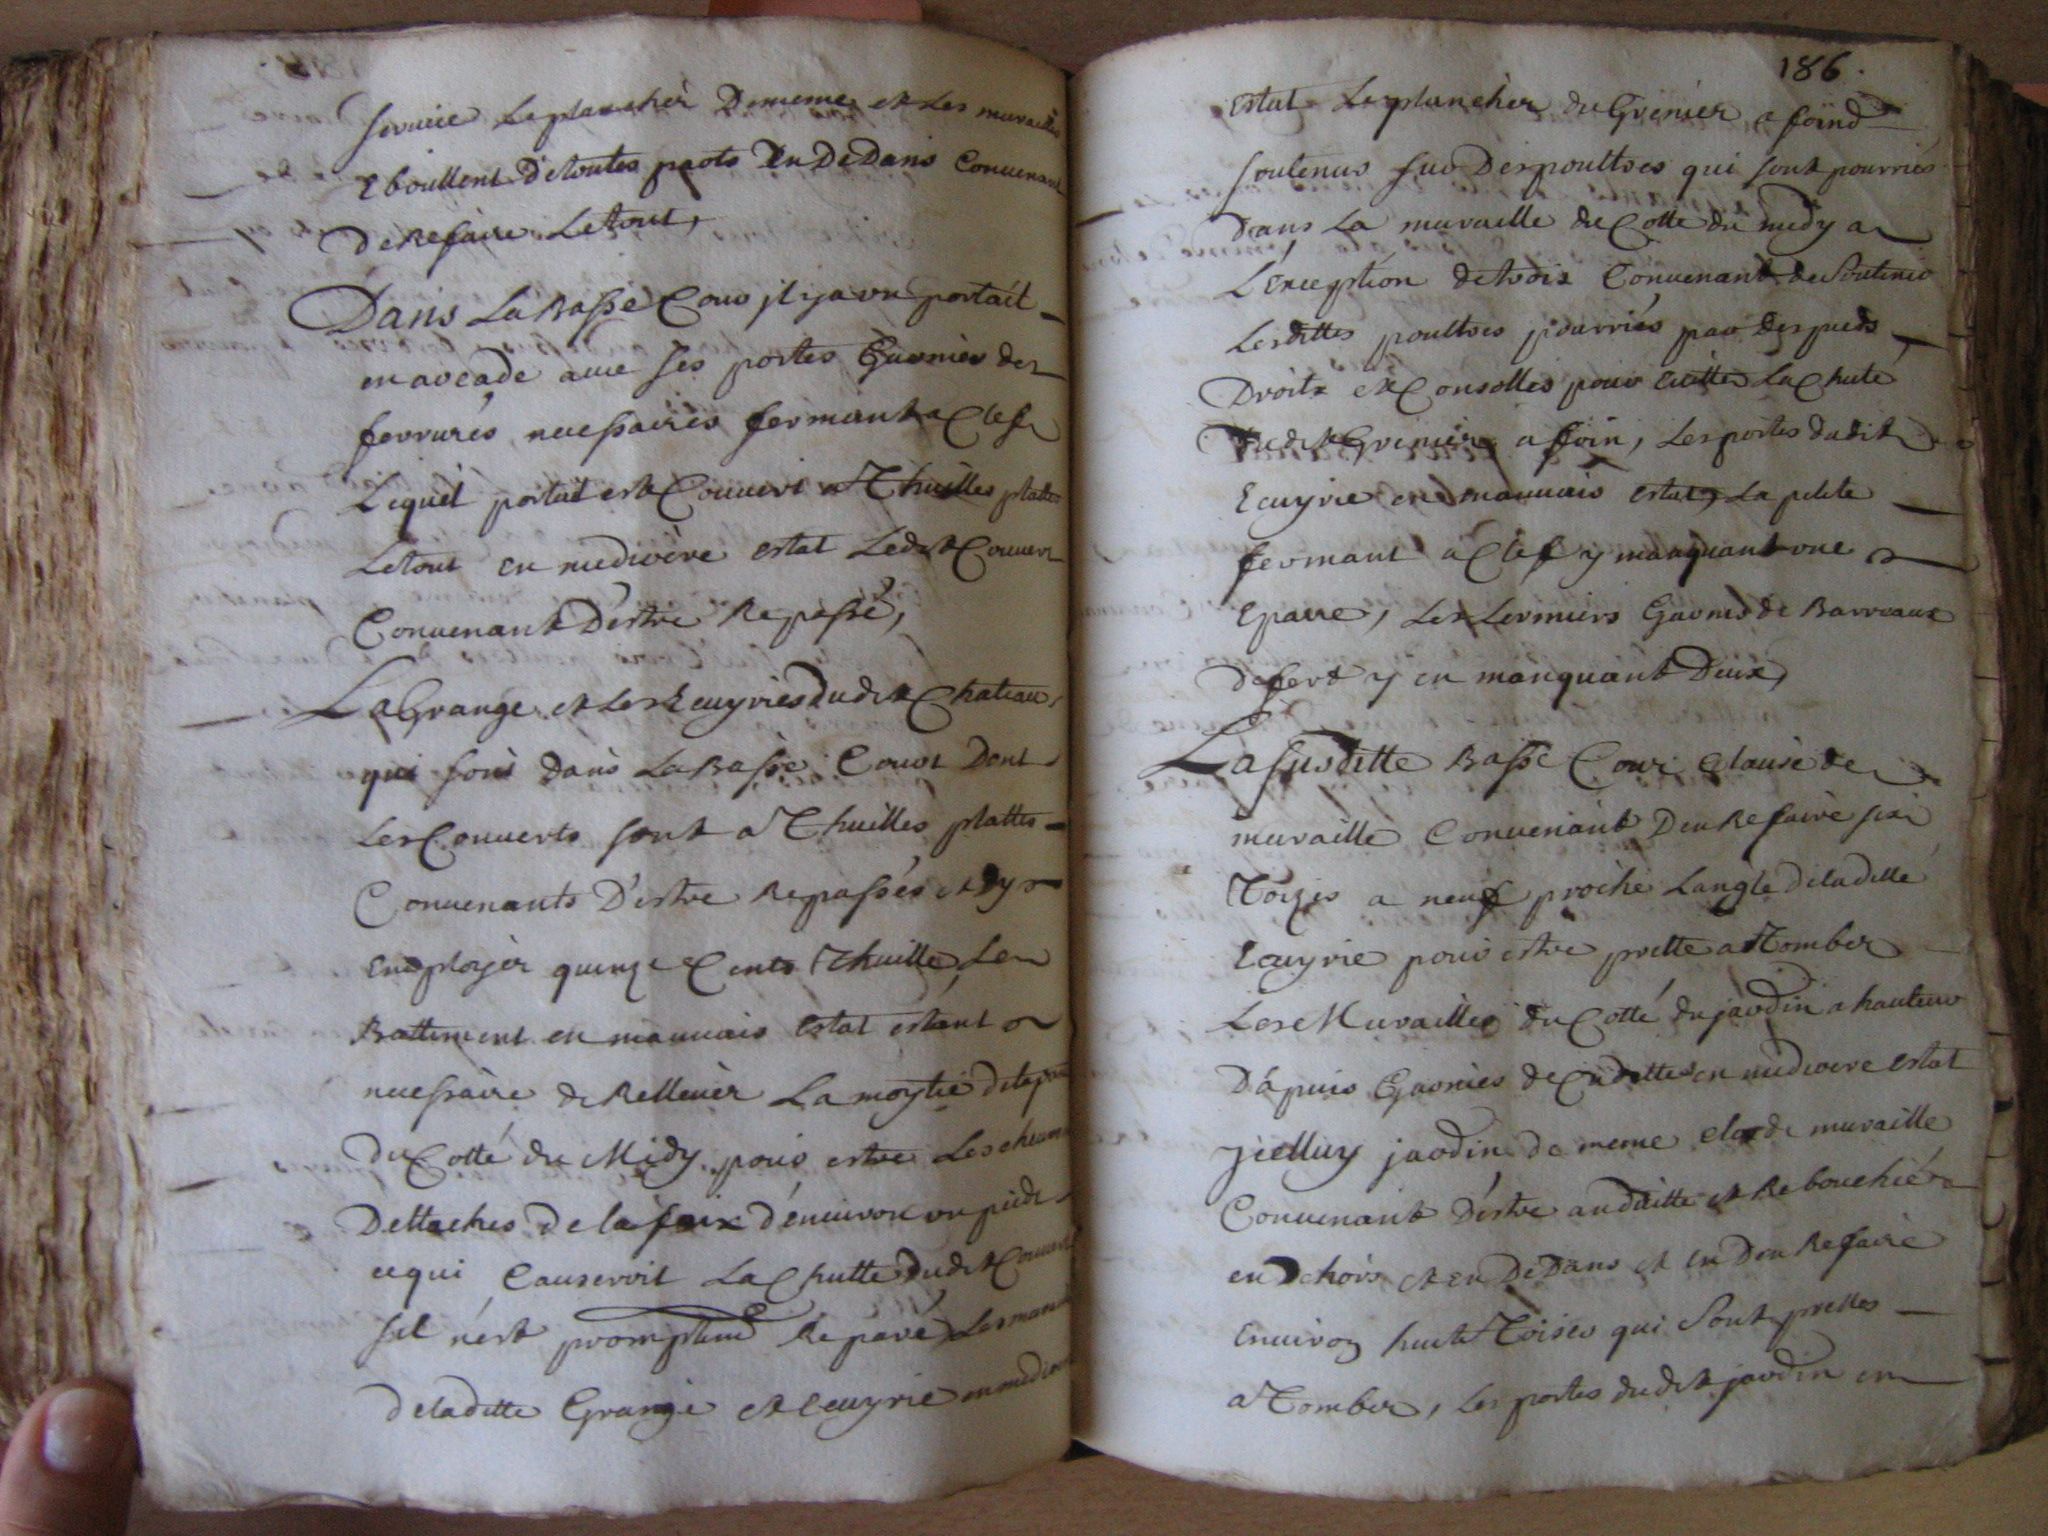 servuice Le plancher De meme et Les murailles
Eboullent De toutes parts En De Dans Convenant
De Refaire Le tout,
Dans La Basse Cour jl y a un portait
en arcade avec ses portes Garnies des
ferrures necessaires fermant a Clef
Lequel portail est Couvert a Thuilles plattes
Le tout en mediocre estat Ledit Couvert
Convenant D'estre Repassé,
La Grange et Les Ecuyries dudit Chateau,
qui sont dans La Basse Court Dont
Les Couverts sont a Thuilles plattes
Convenants D'estre Repassés et d'y
Employer quinze Cents Thuille, Le
Battiment en mauvais Estat estant
necessaire de Rellever La moytié de la
Du Cotté du Midy pour estre Les
Dettachés de la d'environ un pied
ce qui Causeroit La Chutte dudit Couvert
sil n'est promptemt Reparé,
de la ditte Grange et Ecuyrie en mediocre
186.
Estat Le plancher du Grenier a foind
soutenus sur Des poultres qui sont pourries
Dans La muraille du Cotte du midy a
L'Exception de trois Convenant de Soutenir
Lesdittes poultres pourries par Des pieds
Droits et Consolles pour Evitter La Chute
Dudit Grenier a foin, Les portes dudit
Ecuyrie en mauvais estat, La petite
fermant a Clef y manquant une
Eparre, Les Larmiers Garnis de Barreaux
De fert y en manquant Deux,
La susditte Basse Cour Clause de
muraille Convenant D'en Refaire six
Toizes a neuf proche Langle de la ditte
Ecuyrie pour estre prette a Tomber
Les Murailles du Cotté du jardin a hauteur
D'apuis Garnies de Cadettes en mediocre estat
Jcelluy jardin de meme clos de muraille
Convenant D'estre anduitte et Rebouchié
en Dehors et en De Dans et en D'en Refaire
Environ huit Toises qui Sont prettes
a Tomber, Les portes dudit jardin en